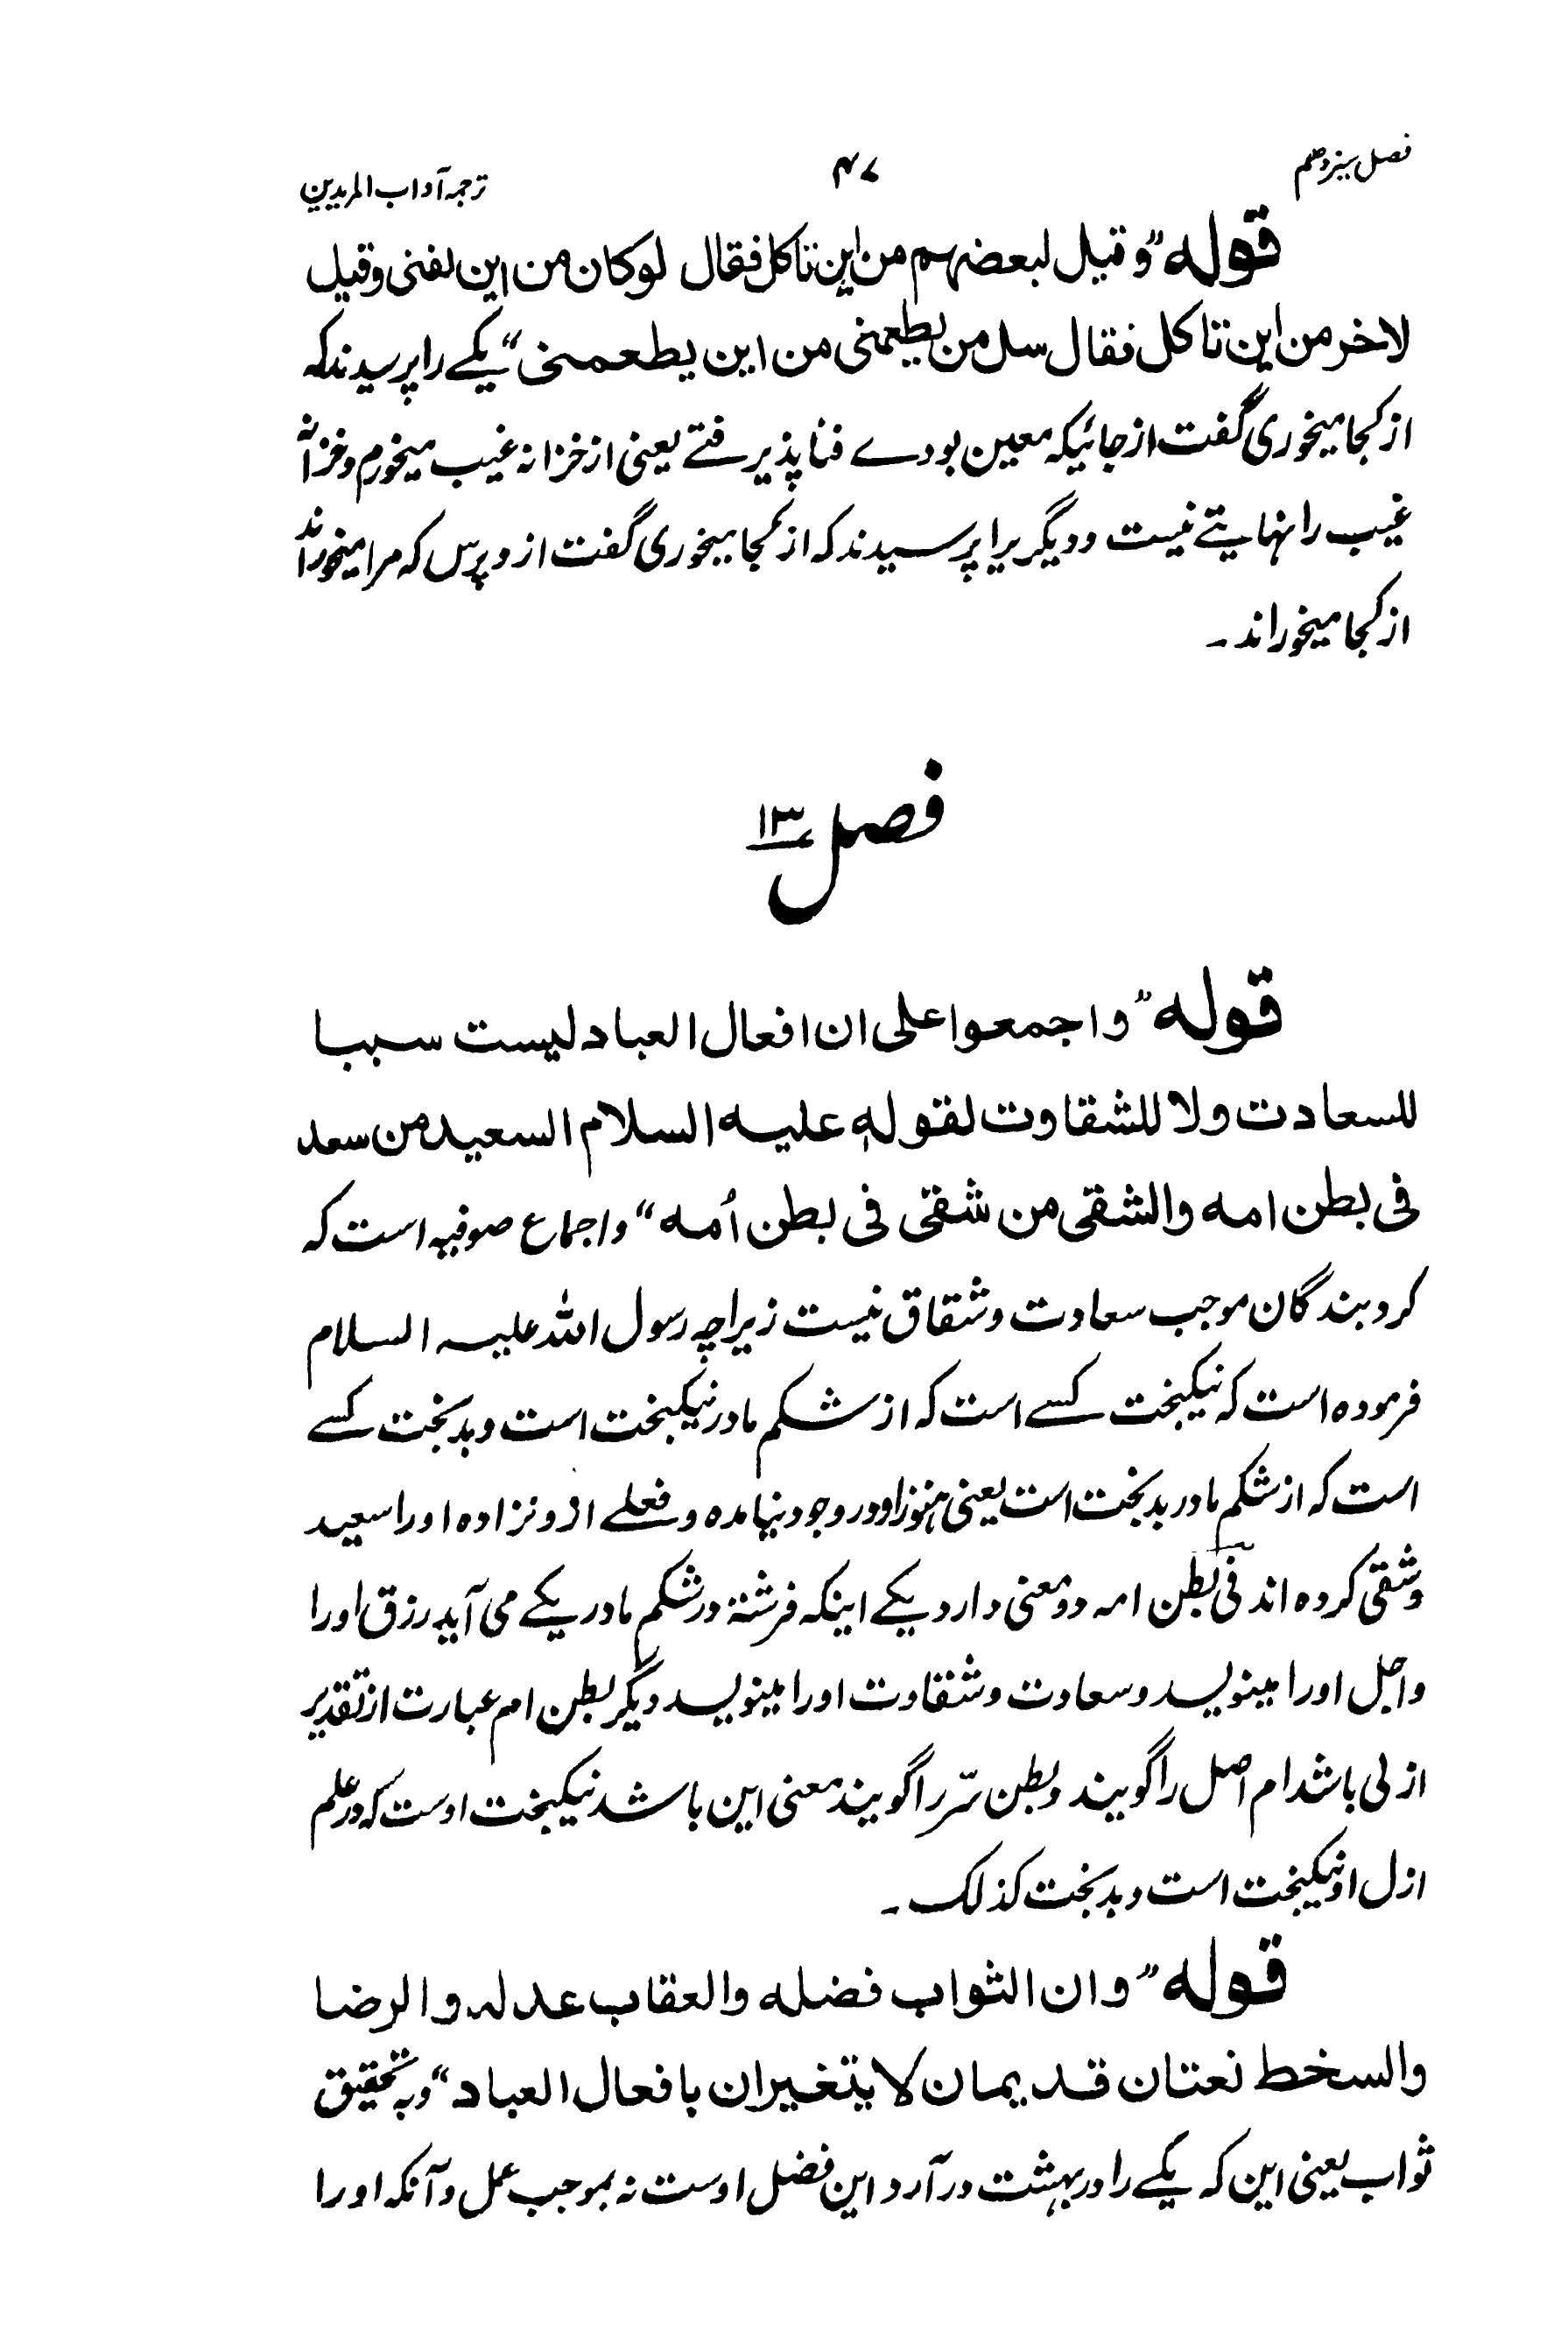 فصل سیزدهم ۴۷ ترجمہ آداب المریدین
قوله ”وقیل لبعضهم من این تاکل فقال لوکان من این لفنی وقیل
لاخر من این تاکل فقال سل من یطعمنی من این یطعمنی“ یکے را پرسیدند کہ
از کجا میخوری گفت از جائیکہ معین بودے فنا پذیرفتے یعنی از خزانہ غیب میخورم و خزانہ
غیب را نہایتے نیست و دیگریرا پرسیدند کہ از کجا میخوری گفت از و پرس کہ مرا میخوراند
از کجا میخوراند ۔
فصل ۱۳
قوله ”واجمعوا علی ان افعال العباد لیست سببا
للسعادت ولا للشقاوت لقوله علیه السلام السعید من سعد
فی بطن امه والشقی من شقی فی بطن اُمه“ و اجماع صوفیہ است کہ
کرد بندگان موجب سعادت و شقاق نیست زیراچہ رسول اللہ علیہ السلام
فرمودہ است کہ نیکبخت کسے است کہ از شکم مادر نیکبخت است و بدبخت کسے
است کہ از شکم مادر بدبخت است یعنی ہنوز او در وجود نیامدہ و فعلے از و نزادہ او را سعید
و شقی کردہ اند فی بطن امہ دو معنی دارد یکے اینکہ فرشتہ در شکم مادر یکے می آید رزق او را
و اجل او را مینویسد و سعادت و شقاوت او را مینویسد دیگر بطن ام عبارت از تقدیر
ازلی باشد ام اصل را گویند و بطن سّر را گویند معنی این باشد نیکبخت اوست کہ در علم
ازل او نیکبخت است و بدبخت کذلک ۔
قوله ”وان الثواب فضله والعقاب عدله والرضا
والسخط نعتان قدیمان لا یتغیران بافعال العباد“ و بہ تحقیق
ثواب یعنی این کہ یکے را در بہشت در آرد این فضل اوست نہ بموجب عمل و آنکہ او را